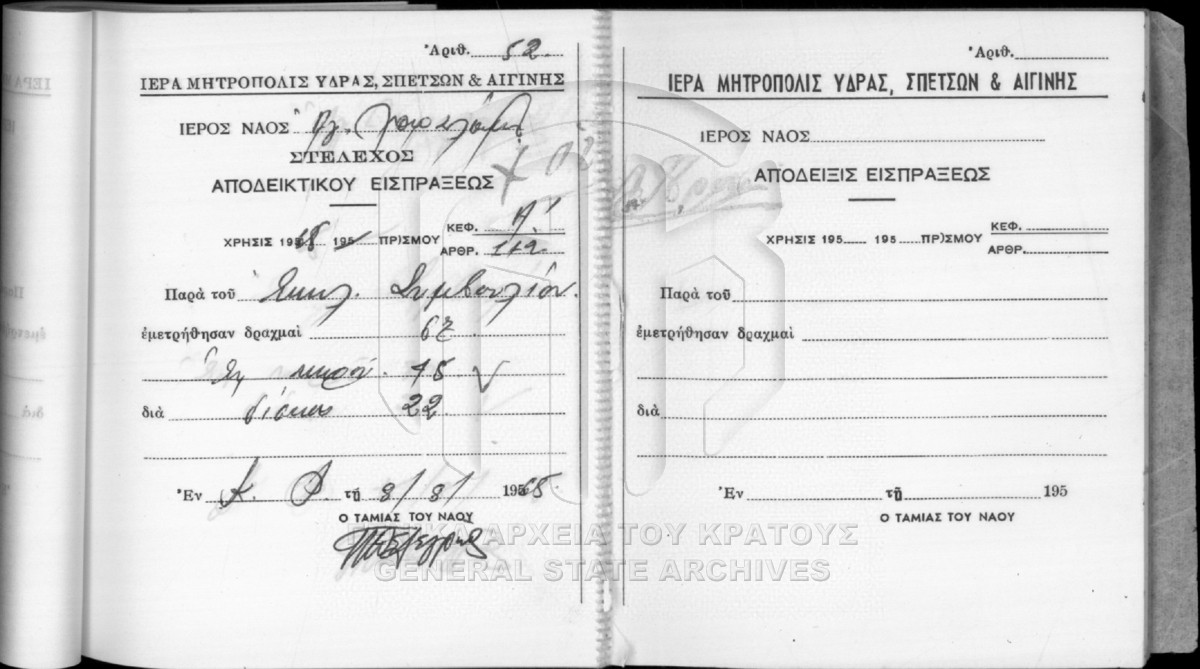 Ἀριθ. 52
ΙΕΡΑ ΜΗΤΡΟΠΟΛΙΣ ΥΔΡΑΣ, ΣΠΕΤΣΩΝ & ΑΙΓΙΝΗΣ
ΙΕΡΟΣ ΝΑΟΣ Ἁγ.
ΣΤΕΛΕΧΟΣ
ΑΠΟΔΕΙΚΤΙΚΟΥ ΕΙΣΠΡΑΞΕΩΣ
ΚΕΦ. Α'
ΧΡΗΣΙΣ 19 195 ΠΡ)ΣΜΟΥ
ΑΡΘΡ. 112
Παρὰ τοῦ Ἐκκλ. Συμβουλίου
ἐμετρήθησαν δραχμαὶ 67
15
διὰ δίσκος 22
Ἐν τῇ 8/8/ 1965
Ο ΤΑΜΙΑΣ ΤΟΥ ΝΑΟΥ
Ἀριθ.
ΙΕΡΑ ΜΗΤΡΟΠΟΛΙΣ ΥΔΡΑΣ, ΣΠΕΤΣΩΝ & ΑΙΓΙΝΗΣ
ΙΕΡΟΣ ΝΑΟΣ
ΑΠΟΔΕΙΞΙΣ ΕΙΣΠΡΑΞΕΩΣ
ΚΕΦ.
ΧΡΗΣΙΣ 195 195 ΠΡ)ΣΜΟΥ
ΑΡΘΡ.
Παρὰ τοῦ
ἐμετρήθησαν δραχμαὶ
διὰ
Ἐν τῇ 195
Ο ΤΑΜΙΑΣ ΤΟΥ ΝΑΟΥ
ΑΡΧΕΙΑ ΤΟΥ ΚΡΑΤΟΥΣ
GENERAL STATE ARCHIVES